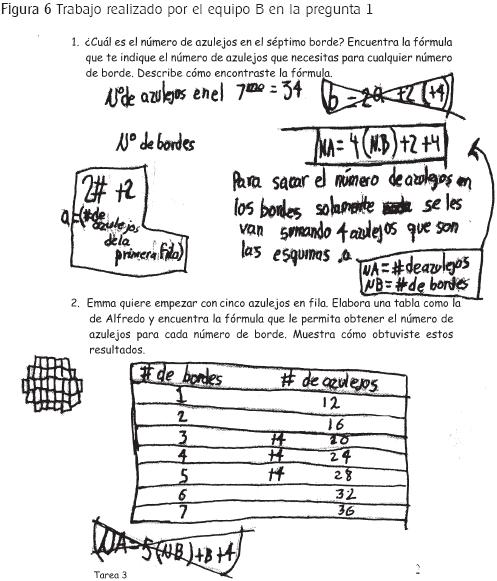 Figura 6 Trabajo realizado por el equipo B en la pregunta 1
1. ¿Cuál es el número de azulejos en el séptimo borde? Encuentra la fórmula
que te indique el número de azulejos que necesitas para cualquier número
de borde. Describe cómo encontraste la fórmula.
Nº de azulejos en el 7mo = 34
b = 2a + 2 (+4)
Nº de bordes
NA = 4(N.B) + 2 + 4
2# + 2
a = (# de
azulejos
de la
primera fila)
Para sacar el número de azulejos en
los bordes solamente se les
van sumando 4 azulejos que son
las esquinas
NA = # de azulejos
NB = # de bordes
2. Emma quiere empezar con cinco azulejos en fila. Elabora una tabla como la
de Alfredo y encuentra la fórmula que le permita obtener el número de
azulejos para cada número de borde. Muestra cómo obtuviste estos
resultados.
# de bordes # de azulejos
1 12
2 16
3 +4 20
4 +4 24
5 +4 28
6 32
7 36
NA = 5(NB) + B + 4
Tarea 3 2